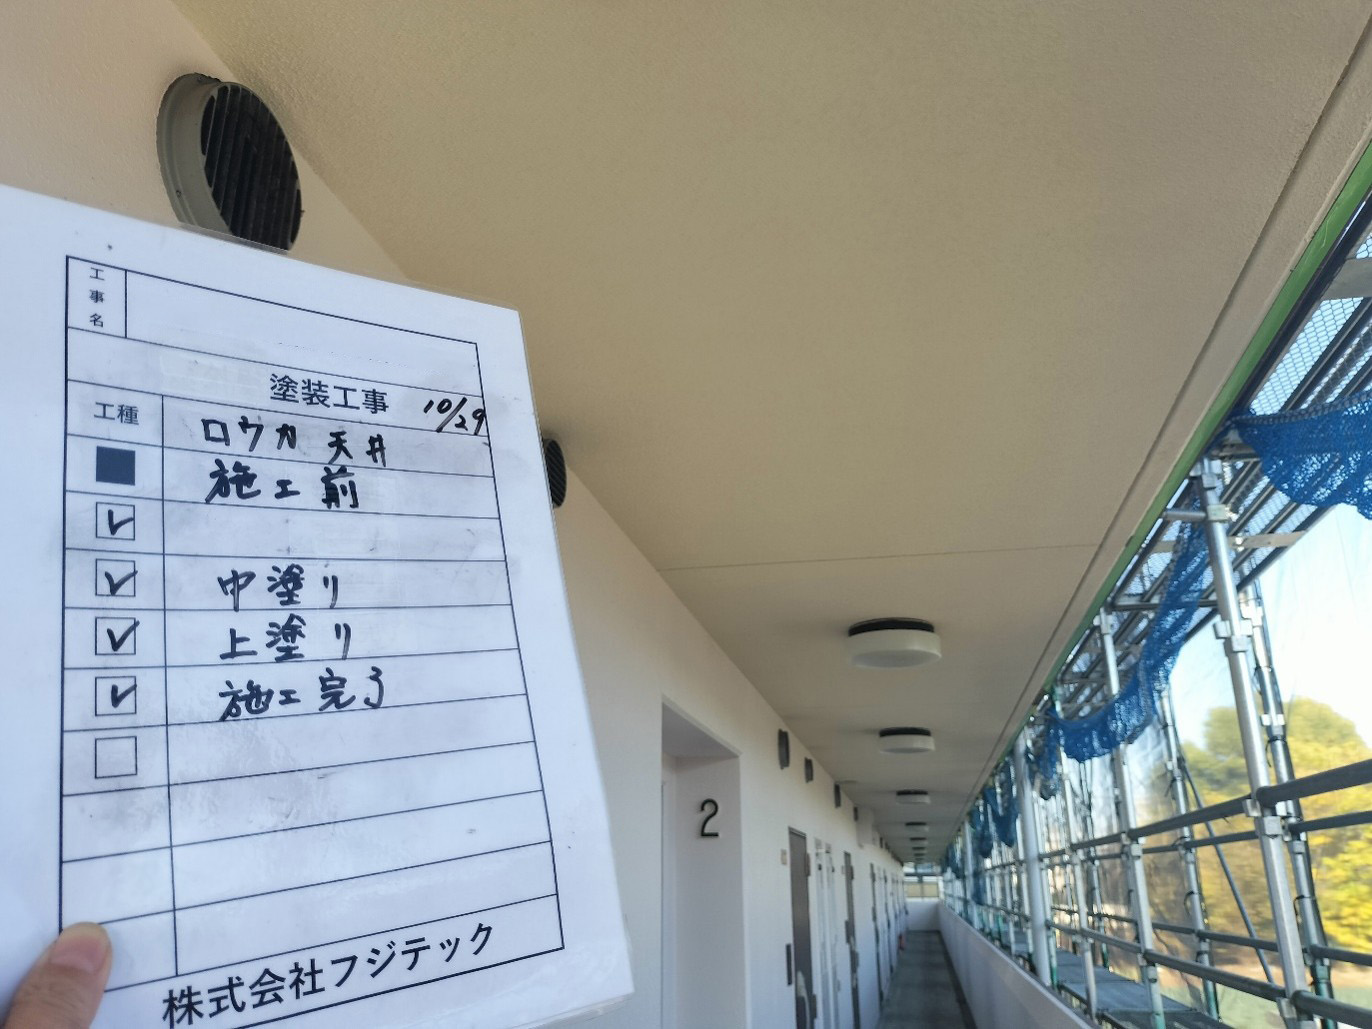 工事名
塗装工事 10/29
工種 ロウカ 天井
施工前
中塗り
上塗り
施工完了
株式会社フジテック
2